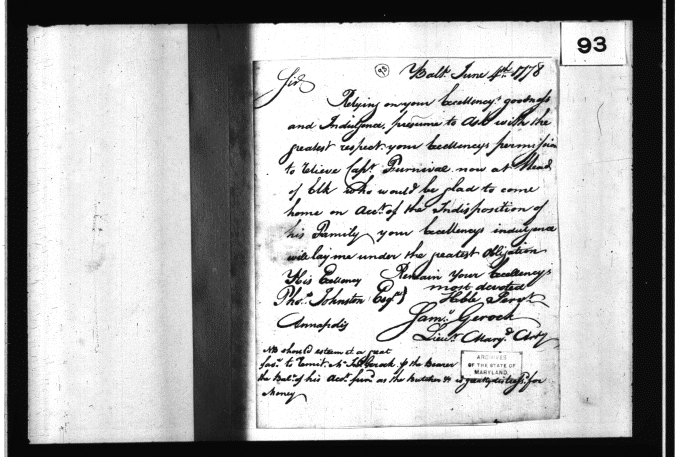 93
(93) Balt. June 4th 1778
Sir
Relying on your Excellency's goodness
and Indulgence, presume to ask with the
greatest respect your Excellency's permission
to relieve Capt. Furnival now at Head
of Elk who would be glad to come
home on Acct. of the Indisposition of
his Family, your Excellency's indulgence
will lay me under the greatest Obligation
His Excellency Remain your Excellency's
most devoted
Thos. Johnston Esqr. Hble Servt.
Saml. Gerock
Annapolis
Lieut. Mary'd Arty
NB should esteem it a great
favr. to remit Mr. Gerock p the Bearer
the Bal. of his Acct. as the Butcher is greatly distress'd for
Money
ARCHIVES
OF THE STATE OF
MARYLAND